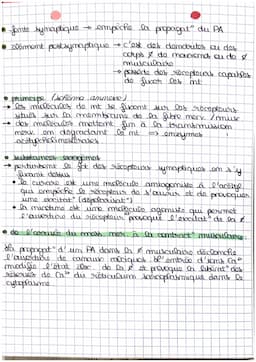 • fente synaptique → empêche la propagat° du PA
• élément postsynaptique → c'est des dendrites ou des
corps ¢ de neurones ou de ¢
musculaire
→ possède des récepteurs capables
de fixer les mt
• principe (schéma annexe)
→ les molécules de mt se fixent sur les récepteurs
situés sur la membrane de la fibre nerv. / musc
→ des molécules mettent fin à la transmission
nerv. en dégradant le mt ⇒ enzymes :
acétylcholinestérases
• substances exogènes
→ perturbent le fct des récepteurs synaptiques en s'y
fixant dessus
• le curare est une molécule antagoniste à l'acétyl
qui empêche le récepteur de s'ouvrir et de provoquer
une excitat° (dépolarisat°)
• la nicotine est une molécule agoniste qui permet
l'ouverture du récepteur provoque l'excitat° de la ¢
• de l'arrivée du mess. nerv. à la contract° musculaire
la propagat° d'un PA dans la ¢ musculaire déclenche
l'ouverture de canaux ioniques. L'entrée d'ions Ca²⁺
modifie l'état de la ¢ et provoque la libérat° des
réserves de Ca²⁺ du réticulum sarcoplasmique dans le
cytoplasme